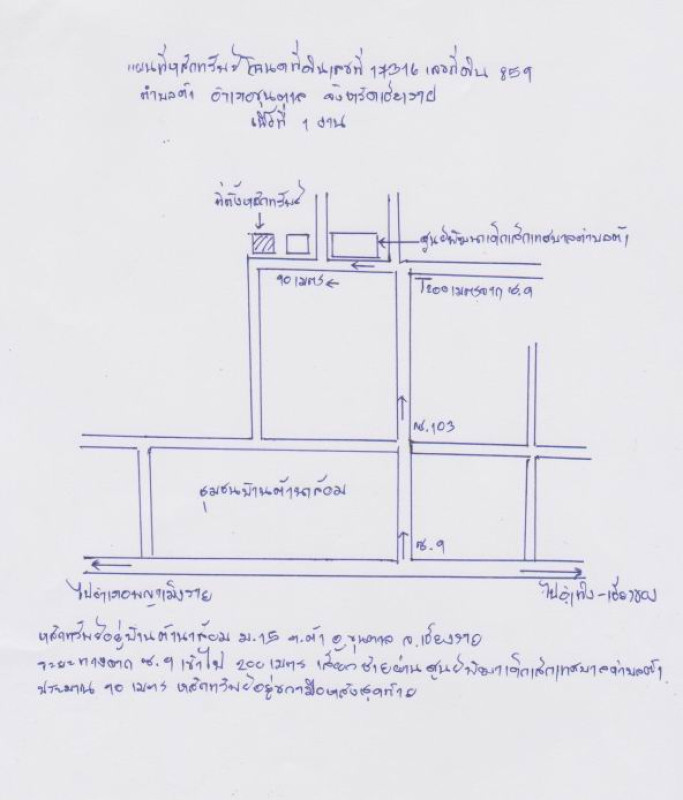 แผนที่หลักทรัพย์ โฉนดที่ดินเลขที่ 17316 เลขที่ดิน 859
ตำบลต้า อำเภอขุนตาล จังหวัดเชียงราย
เนื้อที่ 1 งาน
ที่ตั้งหลักทรัพย์
ศูนย์พัฒนาเด็กเล็กเทศบาลตำบลต้า
90 เมตร
200 เมตรจาก ซ.9
ซ.103
ชุมชนบ้านต้านาล้อม
ซ.9
ไปอำเภอพญาเม็งราย
ไปอ.เทิง-เชียงของ
หลักทรัพย์อยู่บ้านต้านาล้อม ม.15 ต.ต้า อ.ขุนตาล จ.เชียงราย
ระยะทางจาก ซ.9 เข้าไป 200 เมตร เลี้ยวซ้ายผ่านศูนย์พัฒนาเด็กเล็กเทศบาลตำบลต้า
ประมาณ 90 เมตร หลักทรัพย์อยู่ขวามือหลังสุดท้าย